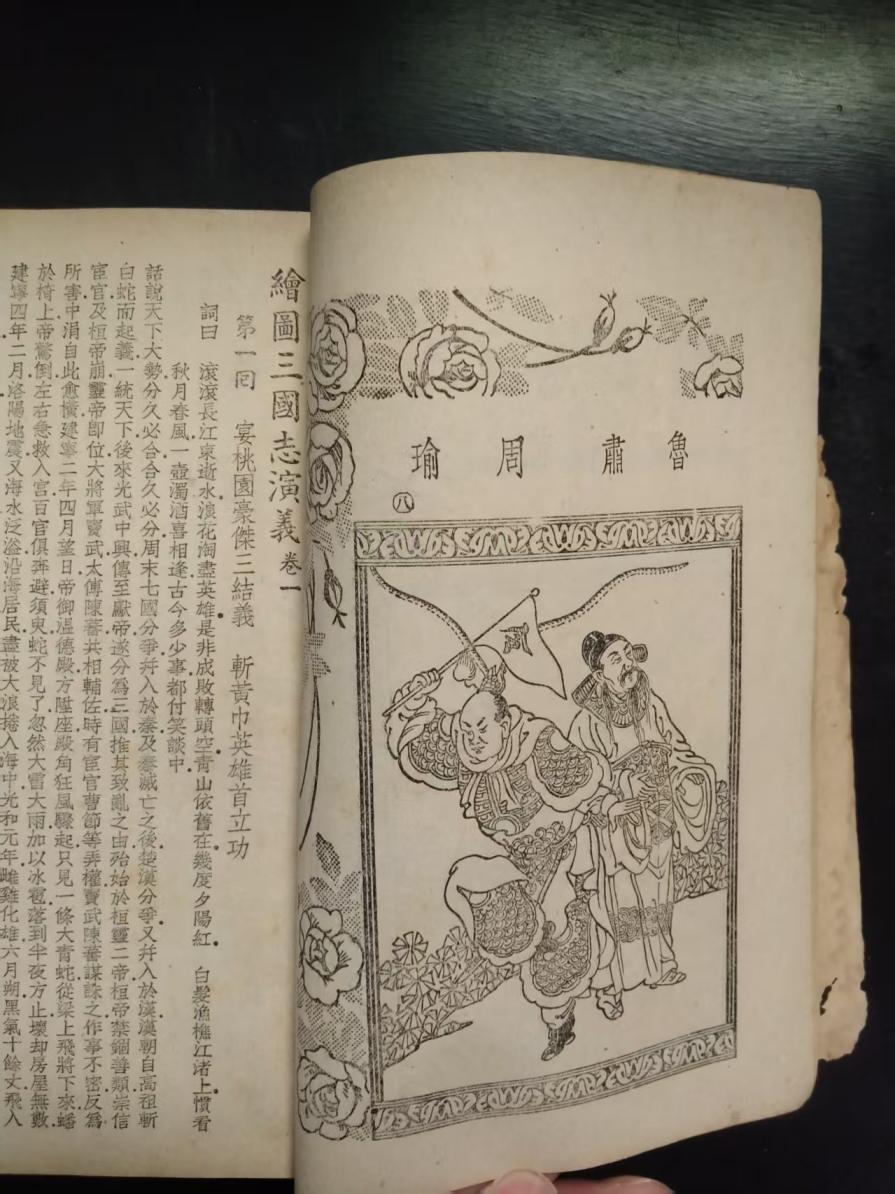 魯肅 周瑜
八
繪圖三國志演義 卷一
第一回 宴桃園豪傑三結義 斬黃巾英雄首立功
詞曰 滾滾長江東逝水浪花淘盡英雄是非成敗轉頭空青山依舊在幾度夕陽紅 白髮漁樵江渚上慣看
秋月春風一壺濁酒喜相逢古今多少事都付笑談中
話說天下大勢分久必合合久必分周末七國分爭并入於秦及秦滅亡之後楚漢分爭又并入於漢漢朝自高祖斬
白蛇而起義一統天下後來光武中興傳至獻帝遂分為三國推其致亂之由殆始於桓靈二帝桓帝禁錮善類崇信
宦官及桓帝崩靈帝卽位大將軍竇武太傅陳蕃共相輔佐時有宦官曹節等弄權竇武陳蕃謀誅之作事不密反為
所害中涓自此愈橫建寧二年四月望日帝御溫德殿方陞座殿角狂風驟起只見一條大青蛇從梁上飛將下來蟠
於椅上帝驚倒左右急救入宮百官俱奔避須臾蛇不見了忽然大雷大雨加以冰雹落到半夜方止壞却房屋無數
建寧四年二月洛陽地震又海水泛溢沿海居民盡被大浪捲入海中光和元年雌雞化雄六月朔黑氣十餘丈飛入